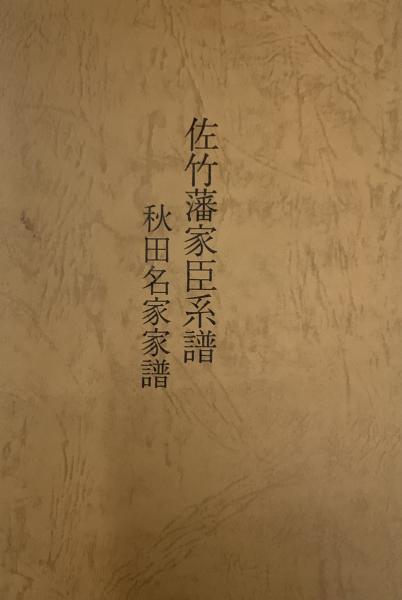 佐竹藩家臣系譜
秋田名家家譜